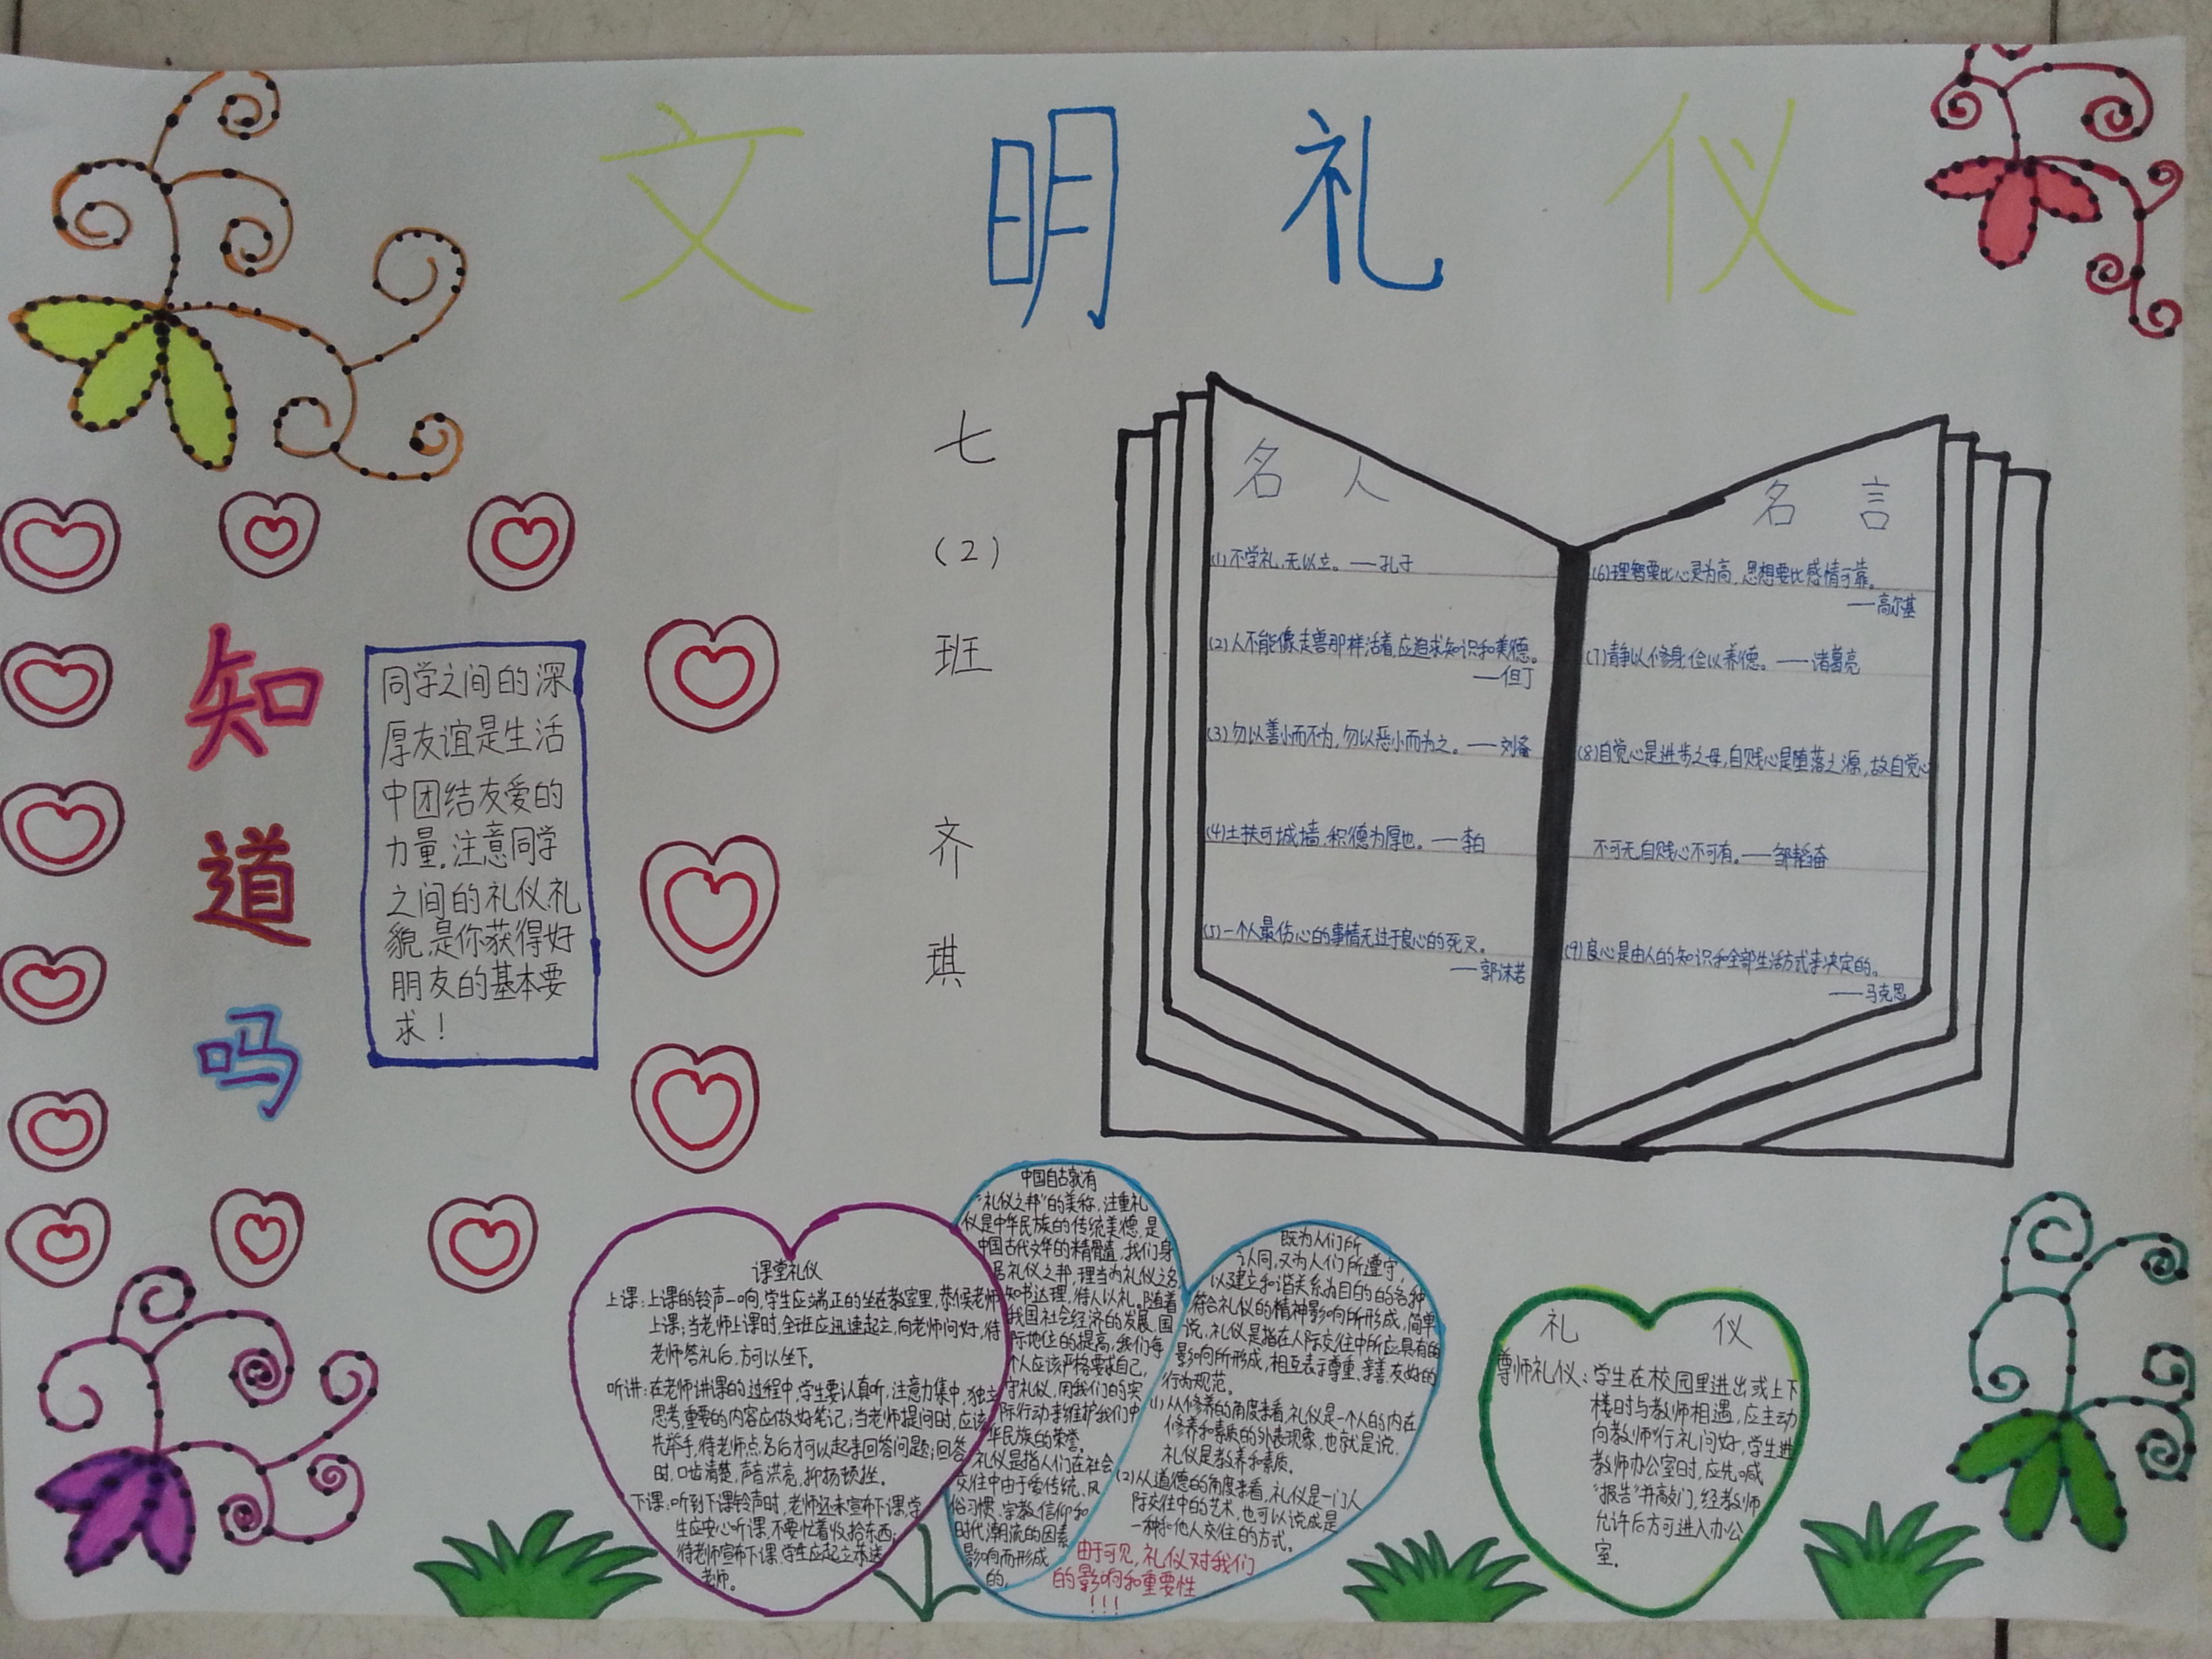 文明礼仪
七(2)班 齐琪
知道吗
同学之间的深
厚友谊是生活
中团结友爱的
力量。注意同学
之间的礼仪礼
貌,是你获得好
朋友的基本要
求!
名人
(1)不学礼,无以立。——孔子
(2)人不能像走兽那样活着,应追求知识和美德。
——但丁
(3)勿以善小而不为,勿以恶小而为之。——刘备
(4)土扶可城墙,积德为厚也。——李白
(5)一个人最伤心的事情无过于良心的死灭。
——郭沫若
名言
(6)理智要比心灵为高,思想要比感情可靠。
——高尔基
(7)静以修身,俭以养德。——诸葛亮
(8)自觉心是进步之母,自贱心是堕落之源,故自觉心
不可无,自贱心不可有。——邹韬奋
(9)良心是由人的知识和全部生活方式来决定的。
——马克思
课堂礼仪
上课:上课的铃声一响,学生应端正的坐在教室里,恭候老师
上课;当老师上课时,全班应迅速起立,向老师问好,待
老师答礼后,方可以坐下。
听讲:在老师讲课的过程中,学生要认真听,注意力集中,独立
思考,重要的内容应做好笔记;当老师提问时,应该
先举手,待老师点名后才可以起来回答问题;回答
时,口齿清楚,声音洪亮,抑扬顿挫。
下课:听到下课铃声时,老师还未宣布下课,学
生应安心听课,不要忙着收拾东西;
待老师宣布下课,学生应起立恭送
老师。
中国自古就有
“礼仪之邦”的美称,注重礼
仪是中华民族的传统美德,是
中国古代文华的精髓,我们身
居礼仪之邦,理当为礼仪之名,
知书达理,待人以礼。随着
我国社会经济的发展,国
际地位的提高,我们每
个人应该严格要求自己,
守礼仪,用我们的实
际行动来维护我们中
华民族的荣誉。
礼仪是指人们在社会
交往中由于受传统、风
俗习惯、宗教信仰和
时代潮流的因素
影响而形成
的,
既为人们所
认同,又为人们所遵守,
以建立和谐关系为目的的各种
符合礼仪的精神影响所形成,简单
说,礼仪是指在人际交往中所应具有的
影响所形成,相互表示尊重、亲善、友好的
行为规范。
(1)从修养的角度来看,礼仪是一个人的内在
修养和素质的外表现象,也就是说,
礼仪是教养和素质。
(2)从道德的角度来看,礼仪是一门人
际交往中的艺术,也可以说成是
一种和他人交往的方式。
由于可见,礼仪对我们
的影响和重要性
!!!
礼仪
尊师礼仪:学生在校园里进出或上下
楼时与教师相遇,应主动
向教师行礼问好,学生进
教师办公室时,应先喊
“报告”并敲门,经教师
允许后方可进入办公
室。